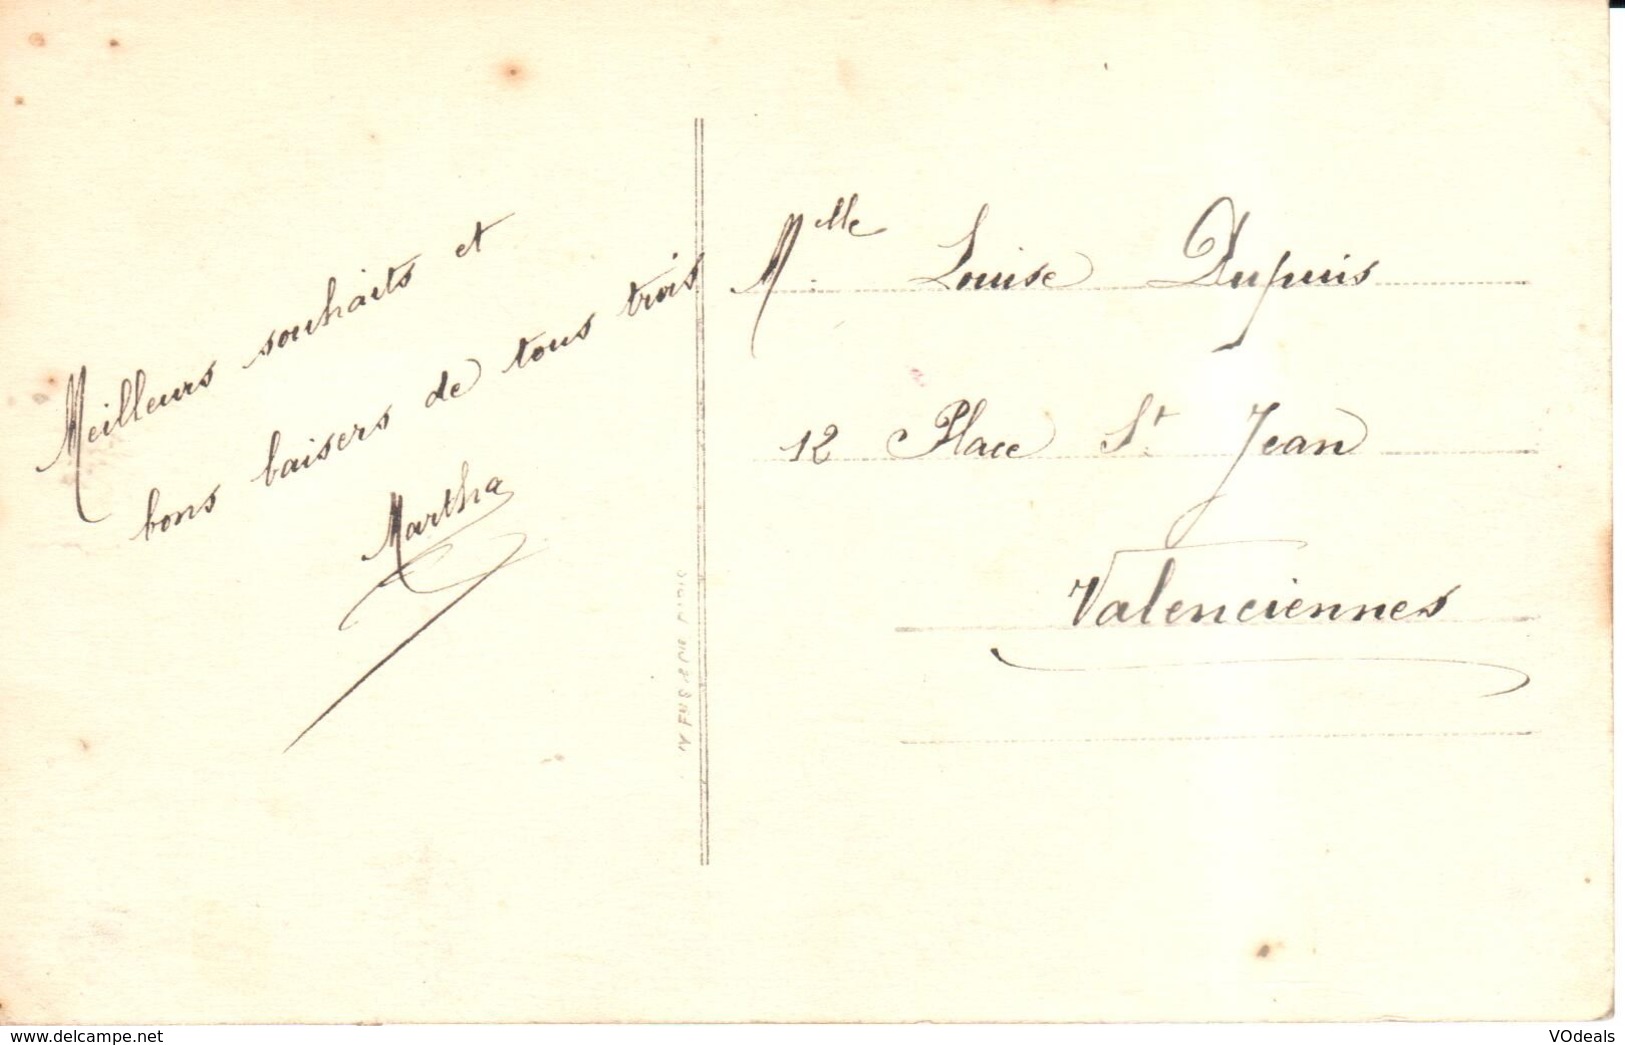 Meilleurs souhaits et
bons baisers de tous trois
Martha
Mlle Louise Dupuis
12 Place St Jean
Valenciennes
www.delcampe.net
VOdeals